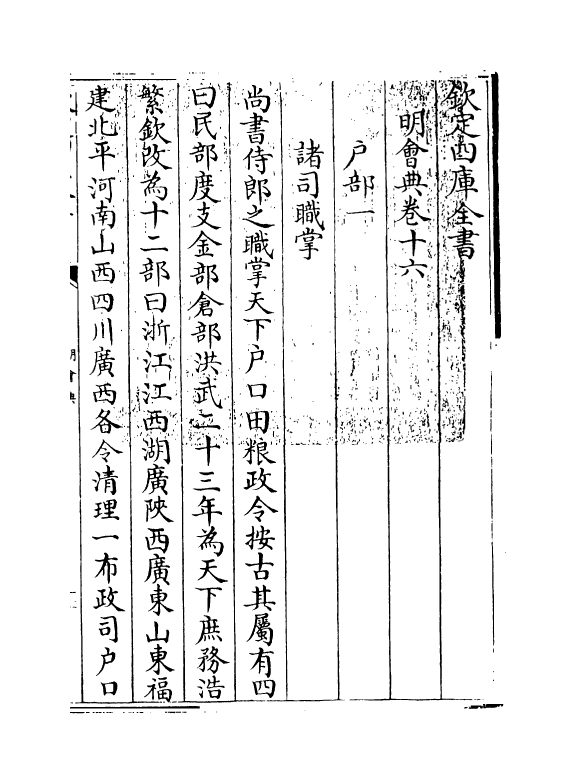 欽定四庫全書
明會典卷十六
戶部一
諸司職掌
尚書侍郎之職掌天下户口田粮政令按古其屬有四
曰民部度支金部倉部洪武二十三年為天下庶務浩
繁欽改為十二部曰浙江江西湖廣陜西廣東山東福
建北平河南山西四川廣西各令清理一布政司户口
明會典